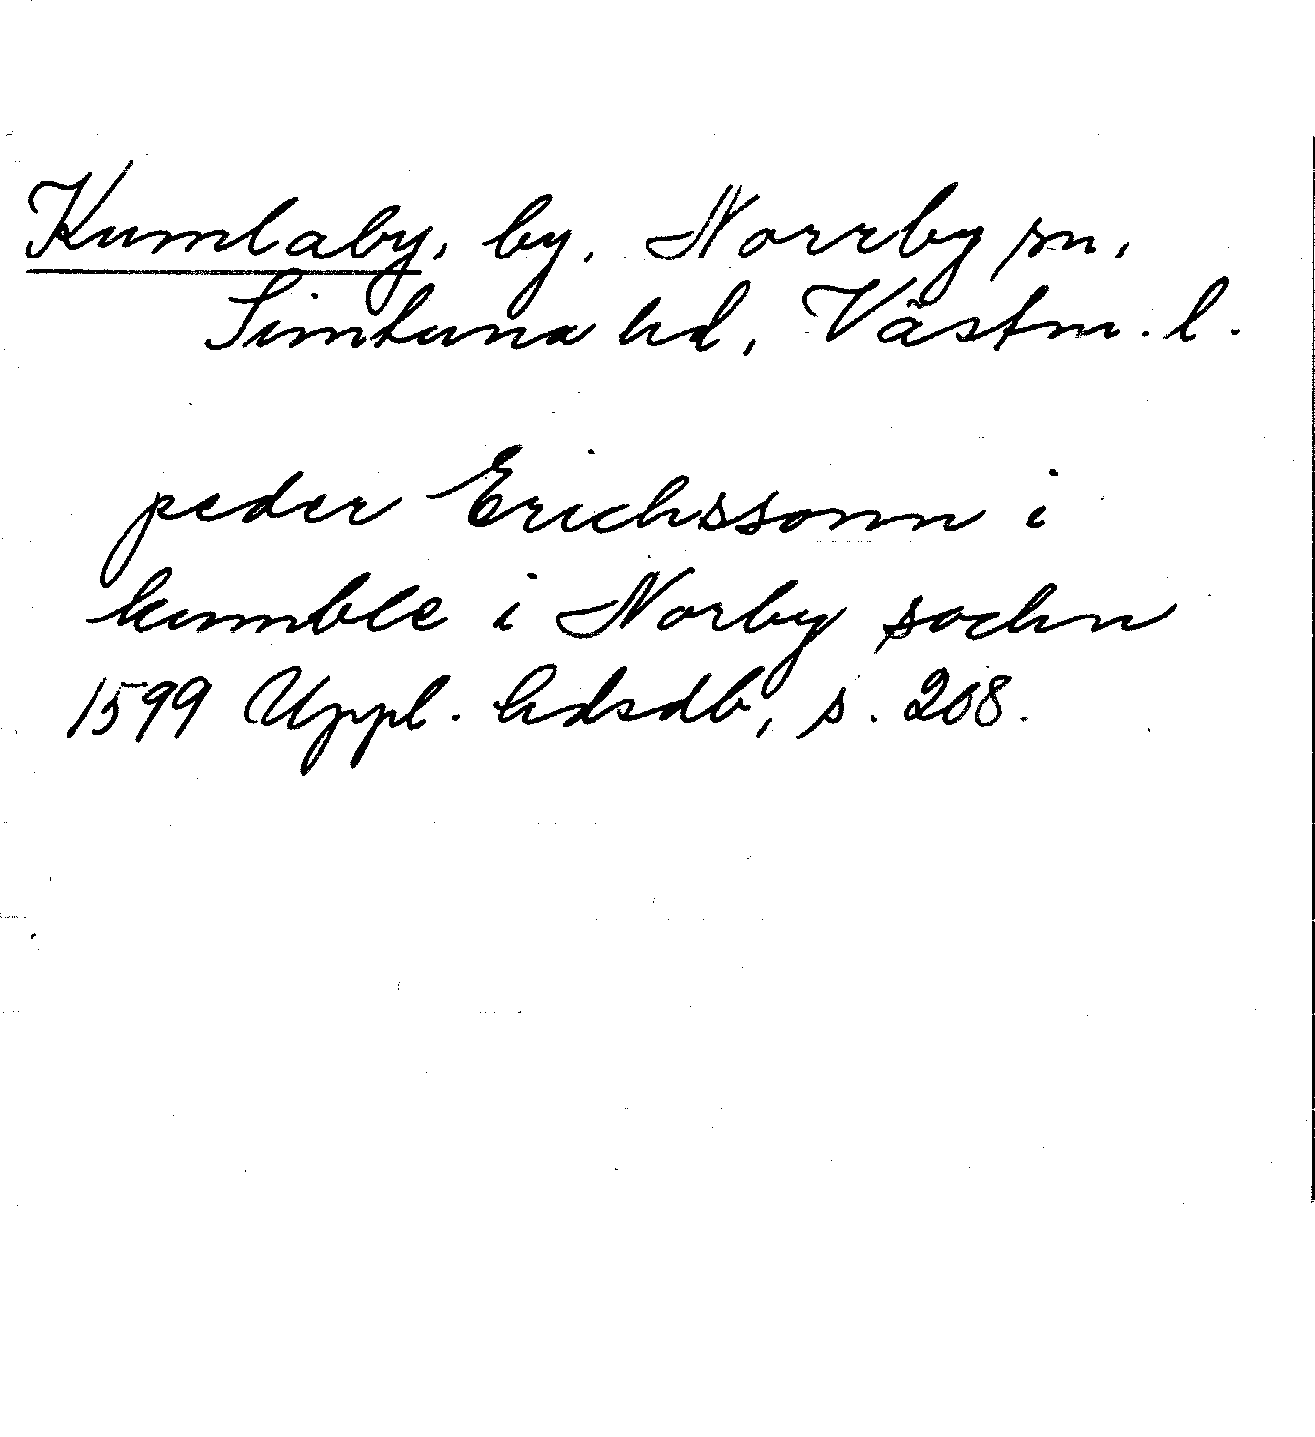 Kumlaby, by, Norrby sn,
Simtuna hd, Västm. l.
peder Erichssonn i
kumble i Norby sochn
1599 Uppl. hdsdb, s. 208.